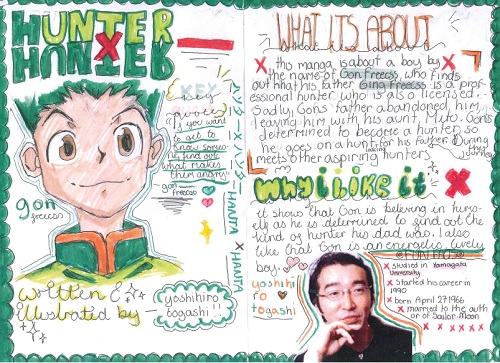 HUNTER
X
HUNTER
KEY
quote
"if you want
to get to
know someone,
find out
what makes
them angry"
gon
freecss
ハンター×ハンター
HANTA X HANTA
gon
freecss
written &
illustrated by
yoshihiro
togashi!!
WHAT ITS ABOUT
this manga is about a boy by
the name of Gon Freecss, who finds
out that his father Ging Freecss is a prof-
essional hunter who is also licensed.
Sadly Gons' father abandoned him,
leaving him with his aunt, Mito. Gon's
determined to become a hunter so
he goes on a hunt for his father. During
taking
his
journey
meets other aspiring hunters
why i like it
it shows that Gon is believing in hims-
elf as he is determined to find out the
kind of hunter his dad was. I also
like that Gon is an energetic, lively
boy.
yoshihi
ro
togashi
studied in Yamagata
University
started his career in
1990
born April 27 1966
married to the auth
or of Sailor Moon